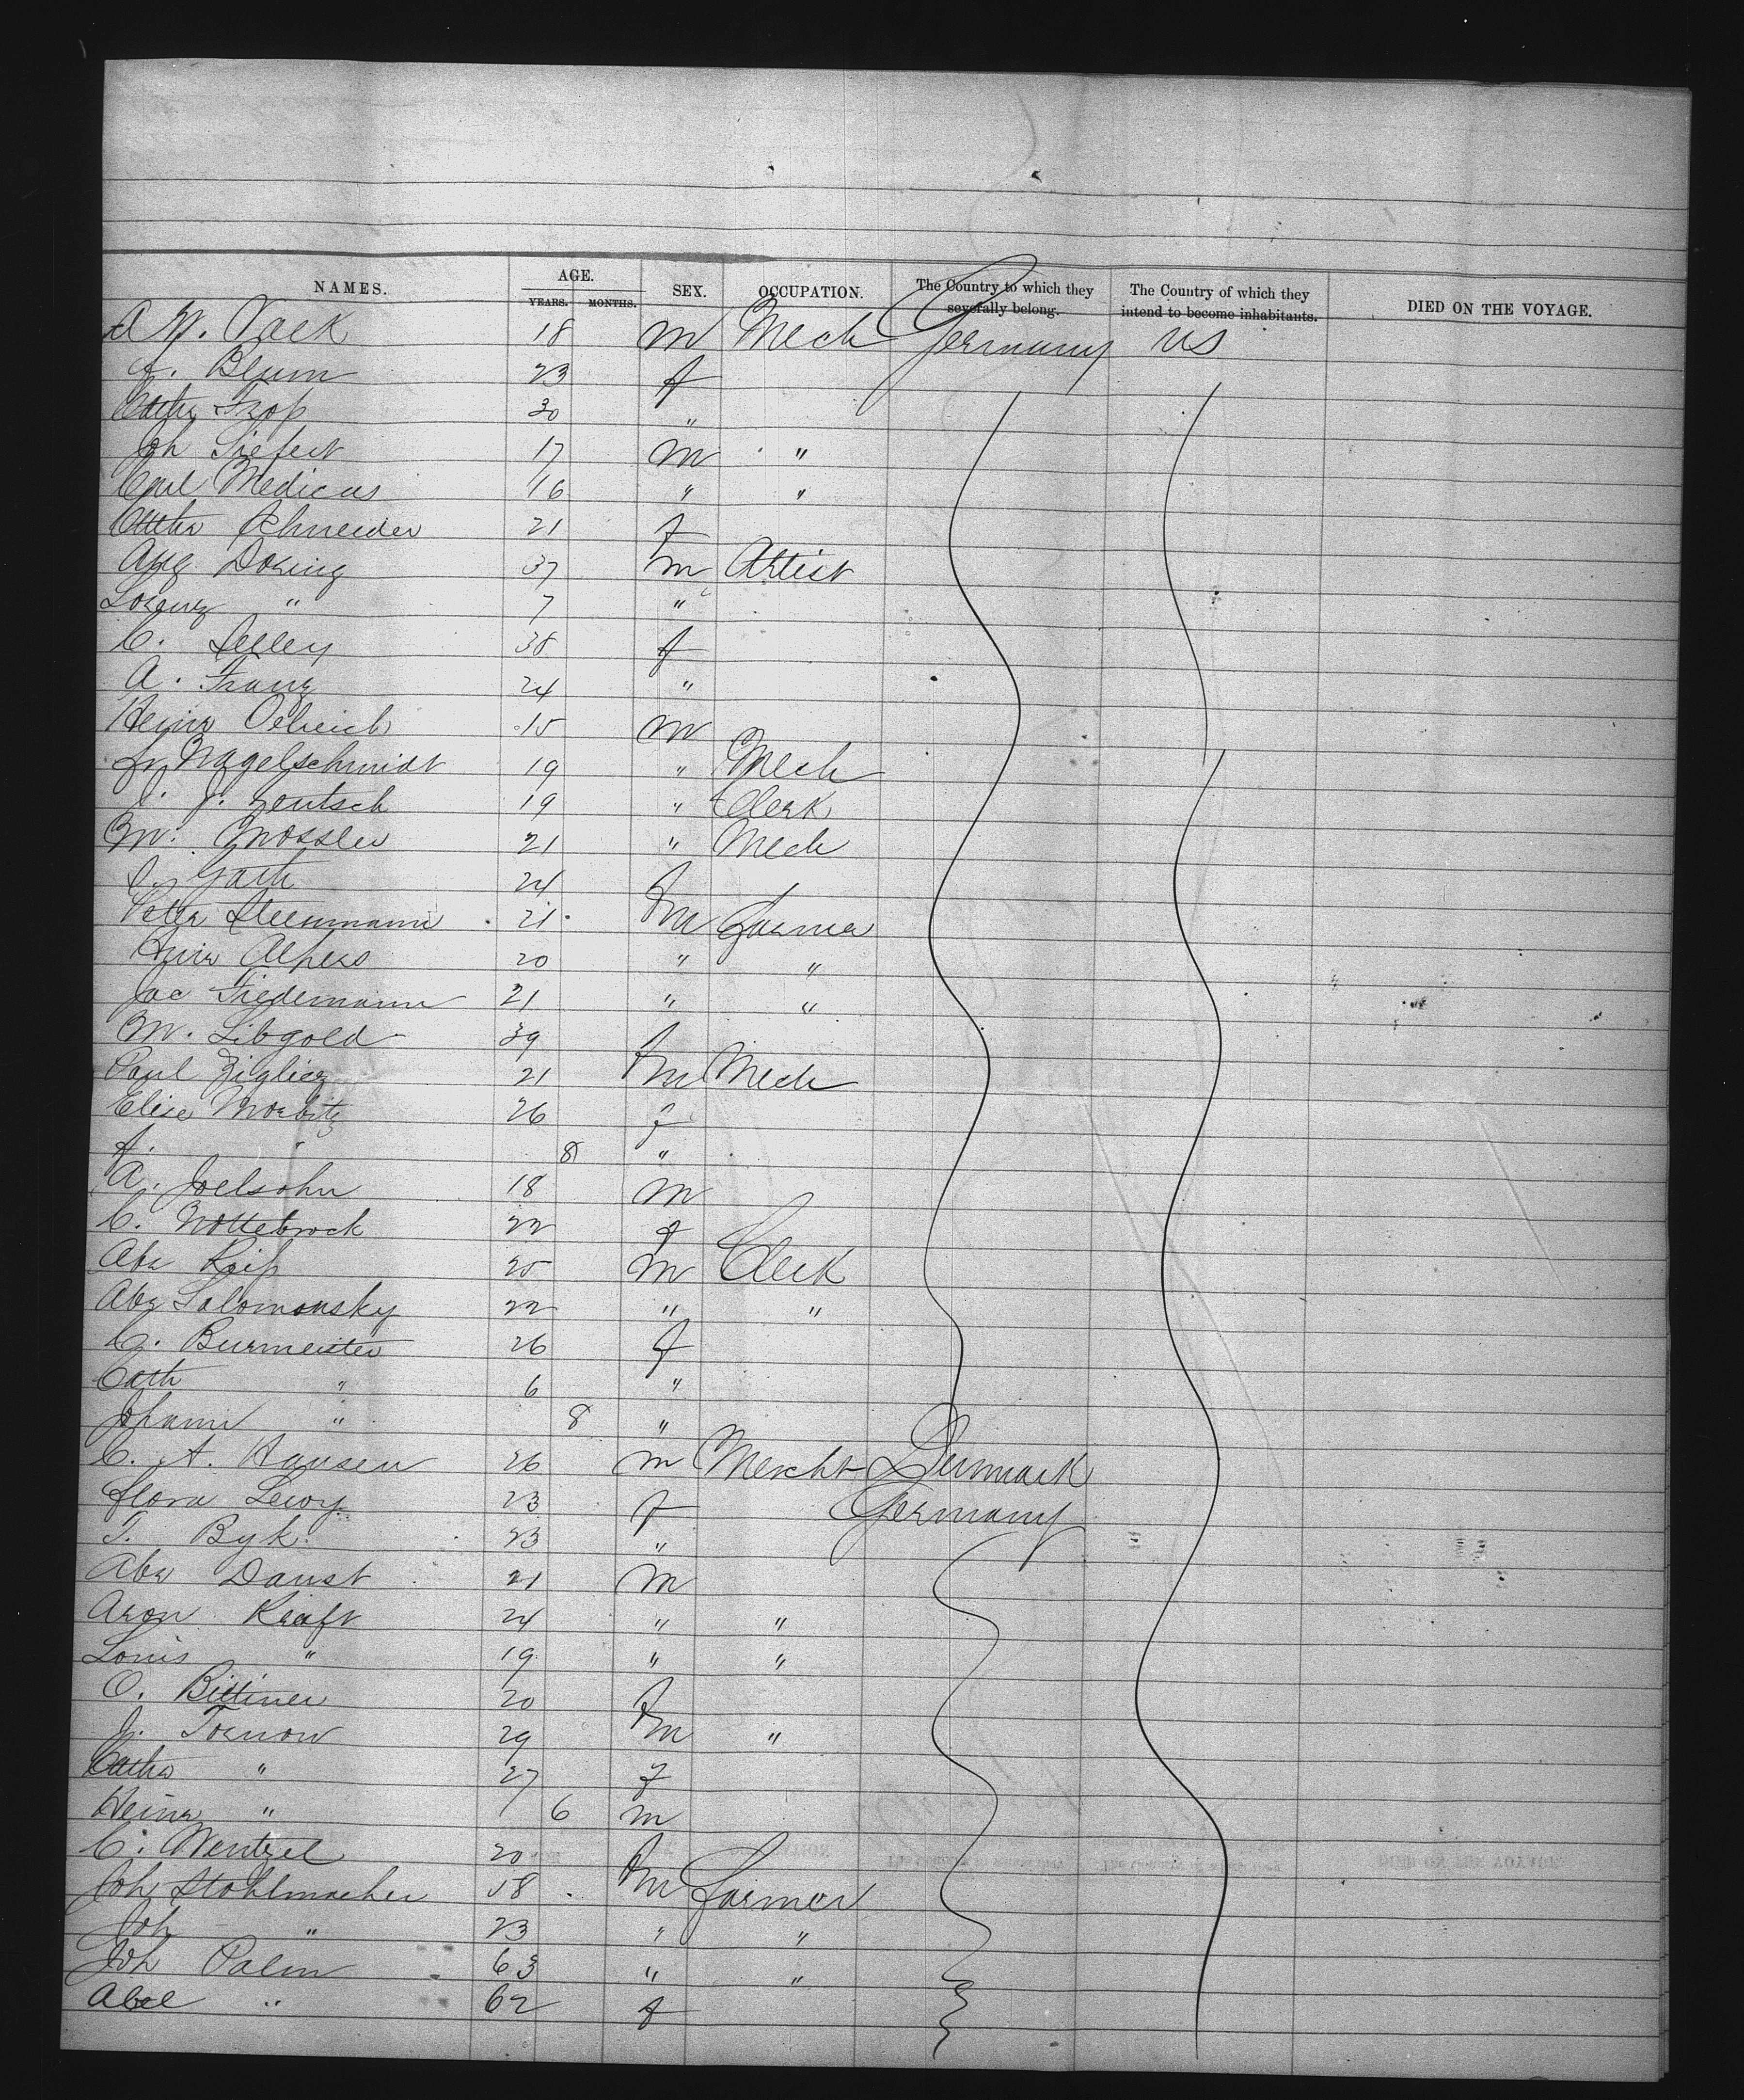 NAMES. AGE. YEARS. MONTHS. SEX. OCCUPATION. The Country to which they severally belong. The Country of which they intend to become inhabitants. DIED ON THE VOYAGE.
18 m Mech Germany US
Blum 23 f
30 "
Joh Siefert 17 m "
Carl Medicus 16 " "
Schneider 21 f
Aug Doring 37 m Artist
Lorenz " 7 "
C. 38 f
A. Franz 24 "
Heinr Oelrich 15 m
Fr Nagelschmidt 19 " Mech
J. J. Zentsch 19 " Clerk
M. Mossler 21 " Mech
Gath 24 f
Peter Steenmann 21 m Farmer
Heinr Alpers 20 " "
Jac Tiedemann 21 " "
M. Libgold 39 f
Paul 21 m Mech
Elise Morbitz 26 f
A. " 8 "
A. Joelsohn 18 m
C. Nottebrock 22 f
Abr 25 m Clerk
Abr Salomonsky 22 " "
C. Burmeister 26 f
Cath " 6 "
Johann " 8 "
C. A. Hansen 26 m Mercht Denmark
Flora Levy 23 f Germany
T. Byk 23 "
Abr Danst 21 m
Aron Kraft 24 " "
Louis " 19 " "
O. Bittiner 20 f
J. Tornow 29 m "
Cathr " 27 f
Heinr " 6 m
C. Wentzel 20 f
Joh Stohlmacher 58 m Farmer
Joh " 23 " "
Joh Palm 63 " "
Abel " 62 f